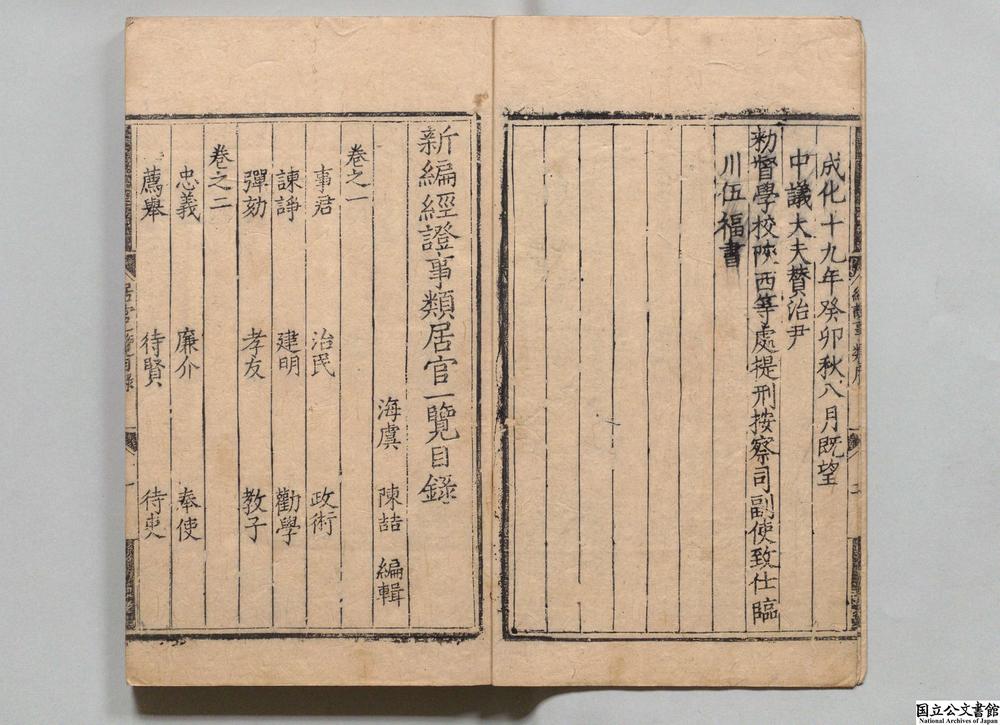 成化十九年癸卯秋八月既望
中議大夫賛治尹
勑督學校陝西等處提刑按察司副使致仕臨
川伍福書
新編經證事類居官一覽目錄
海虞 陳喆 編輯
卷之一
事君 治民 政術
諫諍 建明 勸學
彈劾 孝友 教子
卷之二
忠義 廉介 奉使
薦舉 待賢 待吏
居官一覽目錄 一
二
国立公文書館
National Archives of Japan